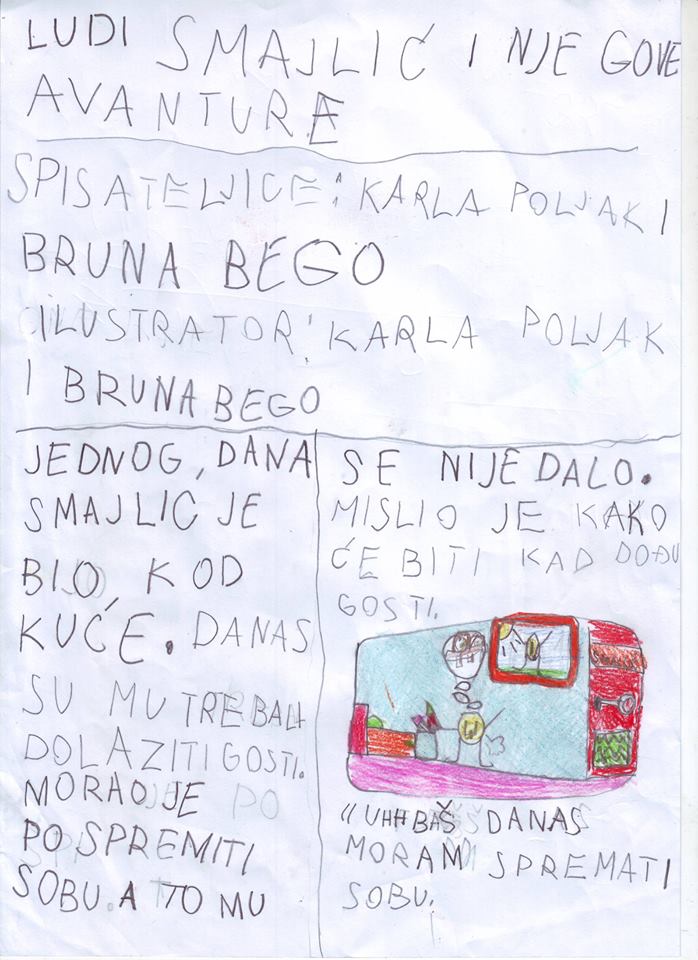 LUDI SMAJLIĆ I NJE GOVE
AVANTURE
SPISATELJICE: KARLA POLJAK I
BRUNA BEGO
ILUSTRATOR: KARLA POLJAK
I BRUNA BEGO
JEDNOG, DANA
SMAJLIĆ JE
BIO, KOD
KUĆE. DANAS
SU MU TREBALI
DOLAZITI GOSTI.
MORAO JE
PO SPREMITI
SOBU. A TO MU
SE NIJE DALO.
MISLIO JE KAKO
ĆE BITI KAD DOĐU
GOSTI.
"UHH BAŠ DANAS
MORAM SPREMATI
SOBU.